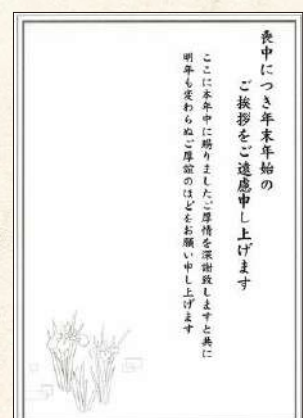 喪中につき年末年始の
ご挨拶をご遠慮申し上げます
ここに本年中に賜りましたご厚情を深謝致しますと共に
明年も変わらぬご厚誼のほどをお願い申し上げます